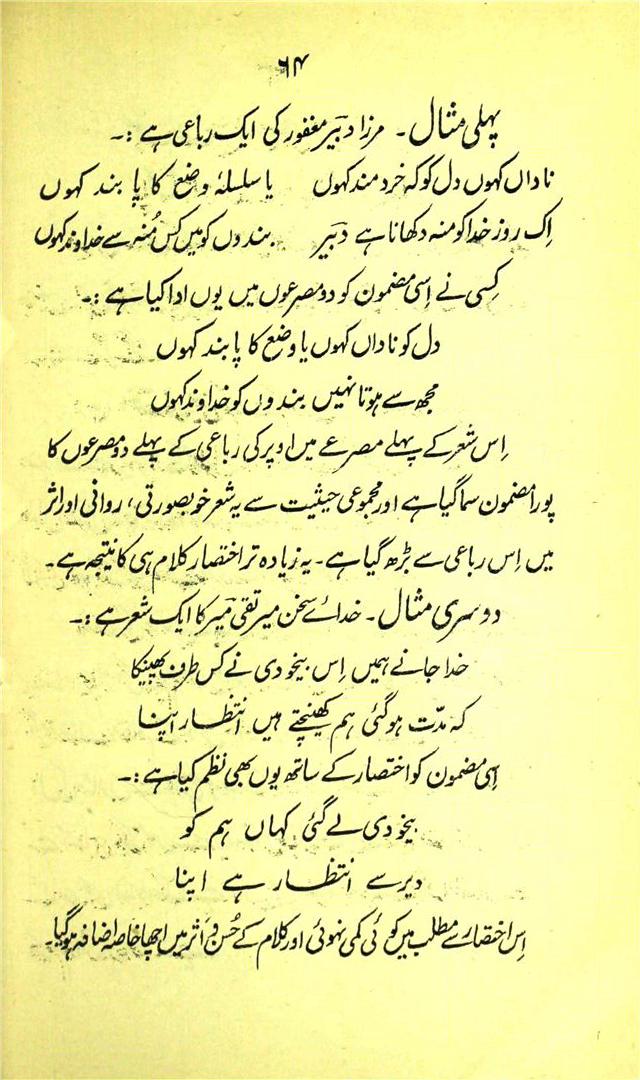 ۶۴
پہلی مثال۔ مرزا دبیر مغفور کی ایک رباعی ہے :۔
ناداں کہوں دل کو کہ خرد مند کہوں یا سلسلۂ وضع کا پابند کہوں
اِک روز خدا کو منہ دکھانا ہے دبیر بندوں کو میں کس مُنہ سے خداوند کہوں
کِسی نے اِسی مضمون کو دو مصرعوں میں یوں ادا کیا ہے :۔
دل کو ناداں کہوں یا وضع کا پابند کہوں
مجھ سے ہوتا نہیں بندوں کو خداوند کہوں
اِس شعر کے پہلے مصرعے میں اوپر کی رباعی کے پہلے دو مصرعوں کا
پورا مضمون سما گیا ہے اور مجموعی حیثیت سے یہ شعر خوبصورتی، روانی اور اثر
میں اِس رباعی سے بڑھ گیا ہے۔ یہ زیادہ تر اختصار کلام ہی کا نتیجہ ہے۔
دوسری مثال۔ خدائے سخن میر تقی میرؔ کا ایک شعر ہے :۔
خدا جانے ہمیں اِس بیخودی نے کس طرف پھینکا
کہ مدّت ہو گئی ہم کھینچتے ہیں انتظار اپنا
اِسی مضمون کو اختصار کے ساتھ یوں بھی نظم کیا ہے :۔
بیخودی لے گئی کہاں ہم کو
دیر سے انتظار ہے اپنا
اِس اختصار سے مطلب میں کوئی کمی نہوئی اور کلام کے حُسن و اثر میں اچھا خاصہ اضافہ ہو گیا۔